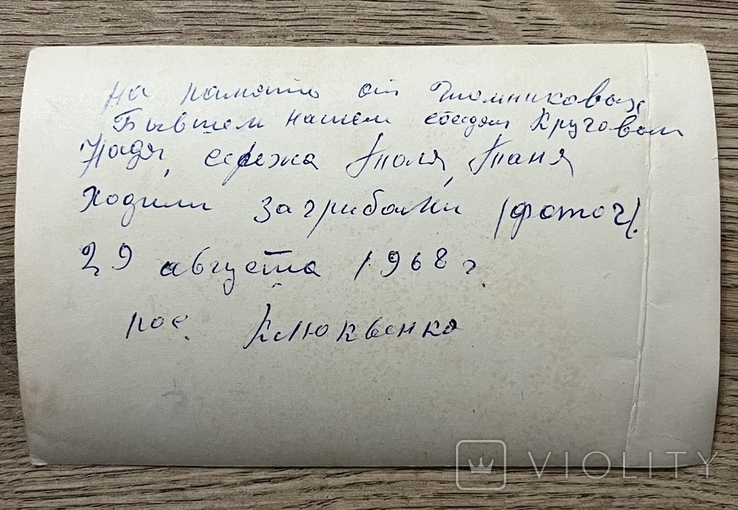 на память от Тюмниковых
Бывшем нашем соседям Круговым
Надя, сережа Толя, Таня
Ходили за грибами (фотог).
29 августа 1968 г.
пос. Клюквенка
VIOLITY